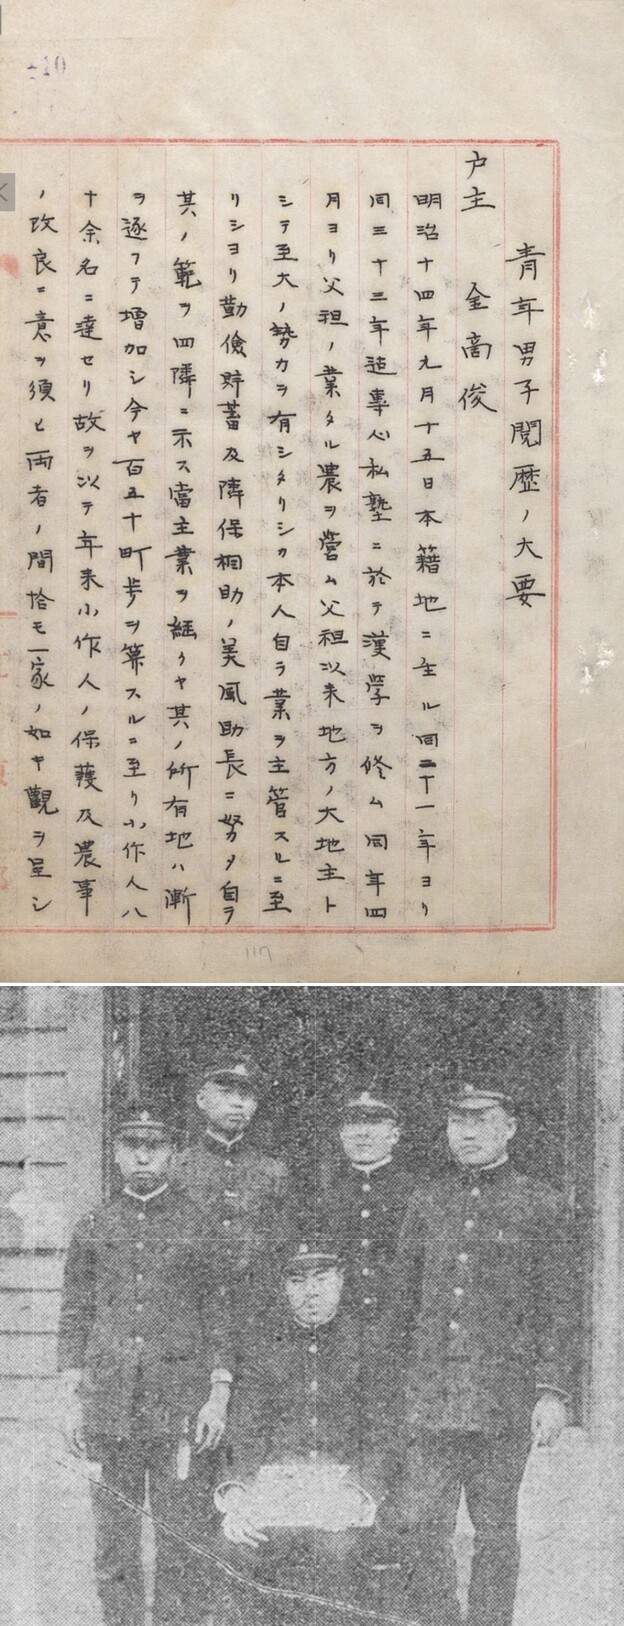 青年男子閲歴ノ大要
戸主 金商俊
明治十四年九月十五日本籍地ニ生ル同二十一年ヨリ
同三十三年迄専心私塾ニ於テ漢学ヲ修ム同年四
月ヨリ父祖ノ業タル農ヲ営ム父祖以来地方ノ大地主ト
シテ至大ノ勢力ヲ有シタリシカ本人自ラ業ヲ主管スルニ至
リシヨリ勤倹貯蓄及隣保相助ノ美風助長ニ努メ自ラ
其ノ範ヲ四隣ニ示ス當主業ヲ継クヤ其ノ所有地ハ漸
ヲ逐フテ増加シ今ヤ百五十町歩ヲ算スルニ至リ小作人八
十余名ニ達セリ故ヲ以テ年来小作人ノ保護及農事
ノ改良ニ意ヲ須ヒ両者ノ間恰モ一家ノ如キ觀ヲ呈シ
117